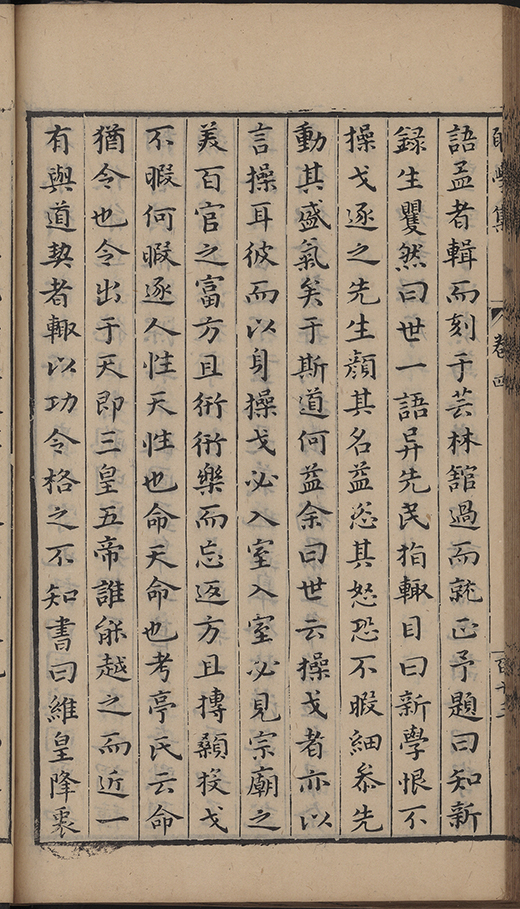 學集
卷四
語孟者輯而刻于芸林舘過而就正予題曰知新
録生瞿然曰世一語异先民指輙目曰新學恨不
操戈逐之先生顔其名益恣其怒恐不暇細叅先
動其盛氣矣于斯道何益余曰世云操戈者亦以
言操耳彼而以身操戈必入室入室必見宗廟之
美百官之富方且衎衎樂而忘返方且摶顙投戈
不暇何暇逐人性天性也命天命也考亭氏云命
猶令也令出于天即三皇五帝誰能越之而近一
有與道契者輙以功令格之不知書曰維皇降衷